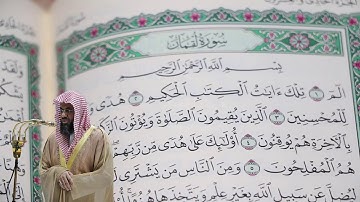 سُورَةُ لُقْمَان
بِسْمِ اللَّهِ الرَّحْمَٰنِ الرَّحِيمِ
الٓمٓ ١ تِلْكَ ءَايَٰتُ الْكِتَٰبِ الْحَكِيمِ ٢ هُدًى وَ
لِّلْمُحْسِنِينَ ٣ الَّذِينَ يُقِيمُونَ الصَّلَوٰةَ وَيُؤْتُونَ الزَّكَوٰ
بِالْءَاخِرَةِ هُمْ يُوقِنُونَ ٤ أُوْلَٰٓئِكَ عَلَىٰ هُدًى مِّن رَّبِّهِمْ
هُمُ الْمُفْلِحُونَ ٥ وَمِنَ النَّاسِ مَن يَشْتَرِي
لِيُضِلَّ عَن سَبِيلِ اللَّهِ بِغَيْرِ عِلْمٍ وَيَتَّخِذَهَا هُزُ